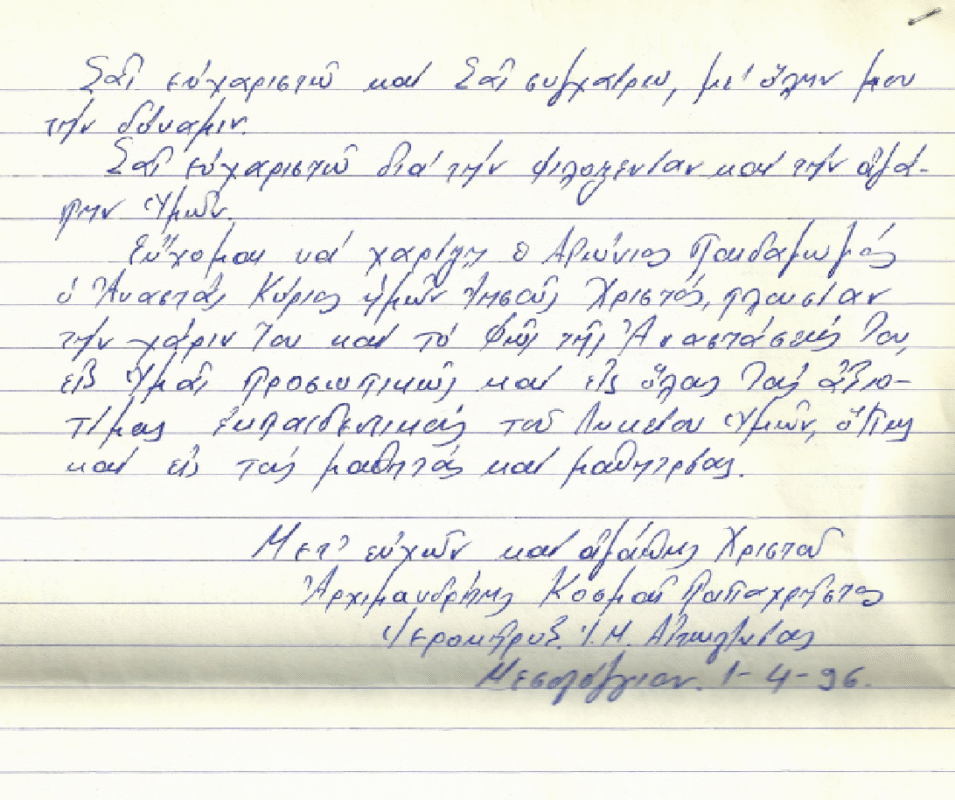 Σᾶς εὐχαριστῶ καί Σᾶς συγχαίρω, μέ ὅλην μου
τήν δύναμιν.
Σᾶς εὐχαριστῶ διά τήν φιλοξενίαν καί τήν ἀγά-
πην Ὑμῶν.
Εὔχομαι νά χαρίζῃ ὁ Αἰώνιος Παιδαγωγός
ὁ Ἀναστάς Κύριος ἡμῶν Ἰησοῦς Χριστός, πλουσίαν
τήν χάριν Του καί τό Φῶς τῆς Ἀναστάσεώς Του,
εἰς Ὑμᾶς προσωπικῶς καί εἰς ὅλους τούς ἀξιο-
τίμους ἐκπαιδευτικούς τοῦ Λυκείου Ὑμῶν, ὅπως
καί εἰς τούς μαθητάς καί μαθητρίας.
Μετ' εὐχῶν καί ἀγάπης Χριστοῦ
Ἀρχιμανδρίτης Κοσμᾶς Παπαχρῆστος
Ἱεροκῆρυξ Ἱ. Μ. Αἰτωλίας
Μεσολόγγιον. 1-4-96.